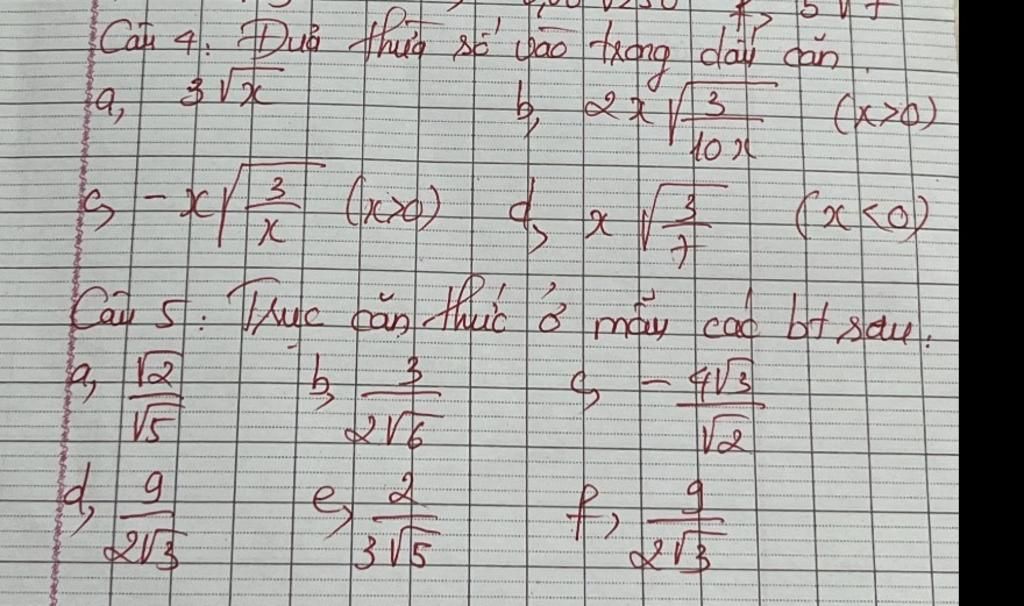 f, 5√7
Câu 4. Đưa thừa số vào trong dấu căn.
a, 3√x b, 2x√(3/10x) (x>0)
c, -x√(3/x) (x>0) d, x√(3/7) (x<0)
Câu 5: Trục căn thức ở mẫu các bt sau.
a, √2/√5 b, 3/2√6 c, - 4√3/√2
d, 9/2√3 e, 2/3√5 f, 9/2√3